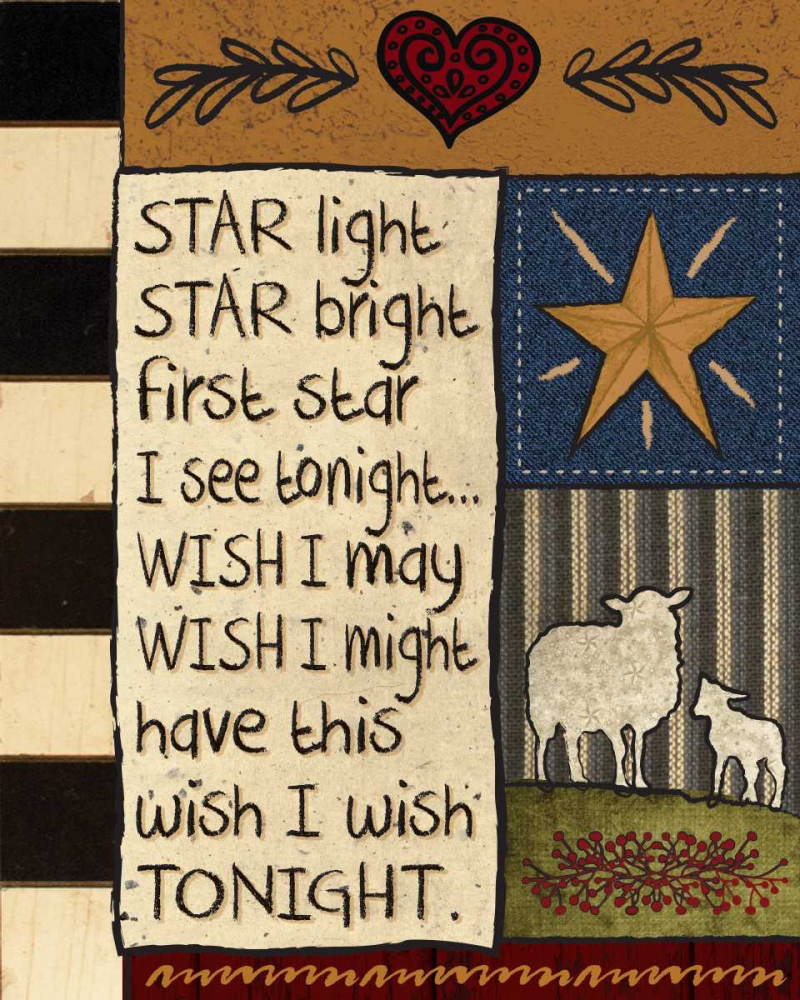 STAR light
STAR bright
first star
I see tonight...
WISH I may
WISH I might
have this
wish I wish
TONIGHT.